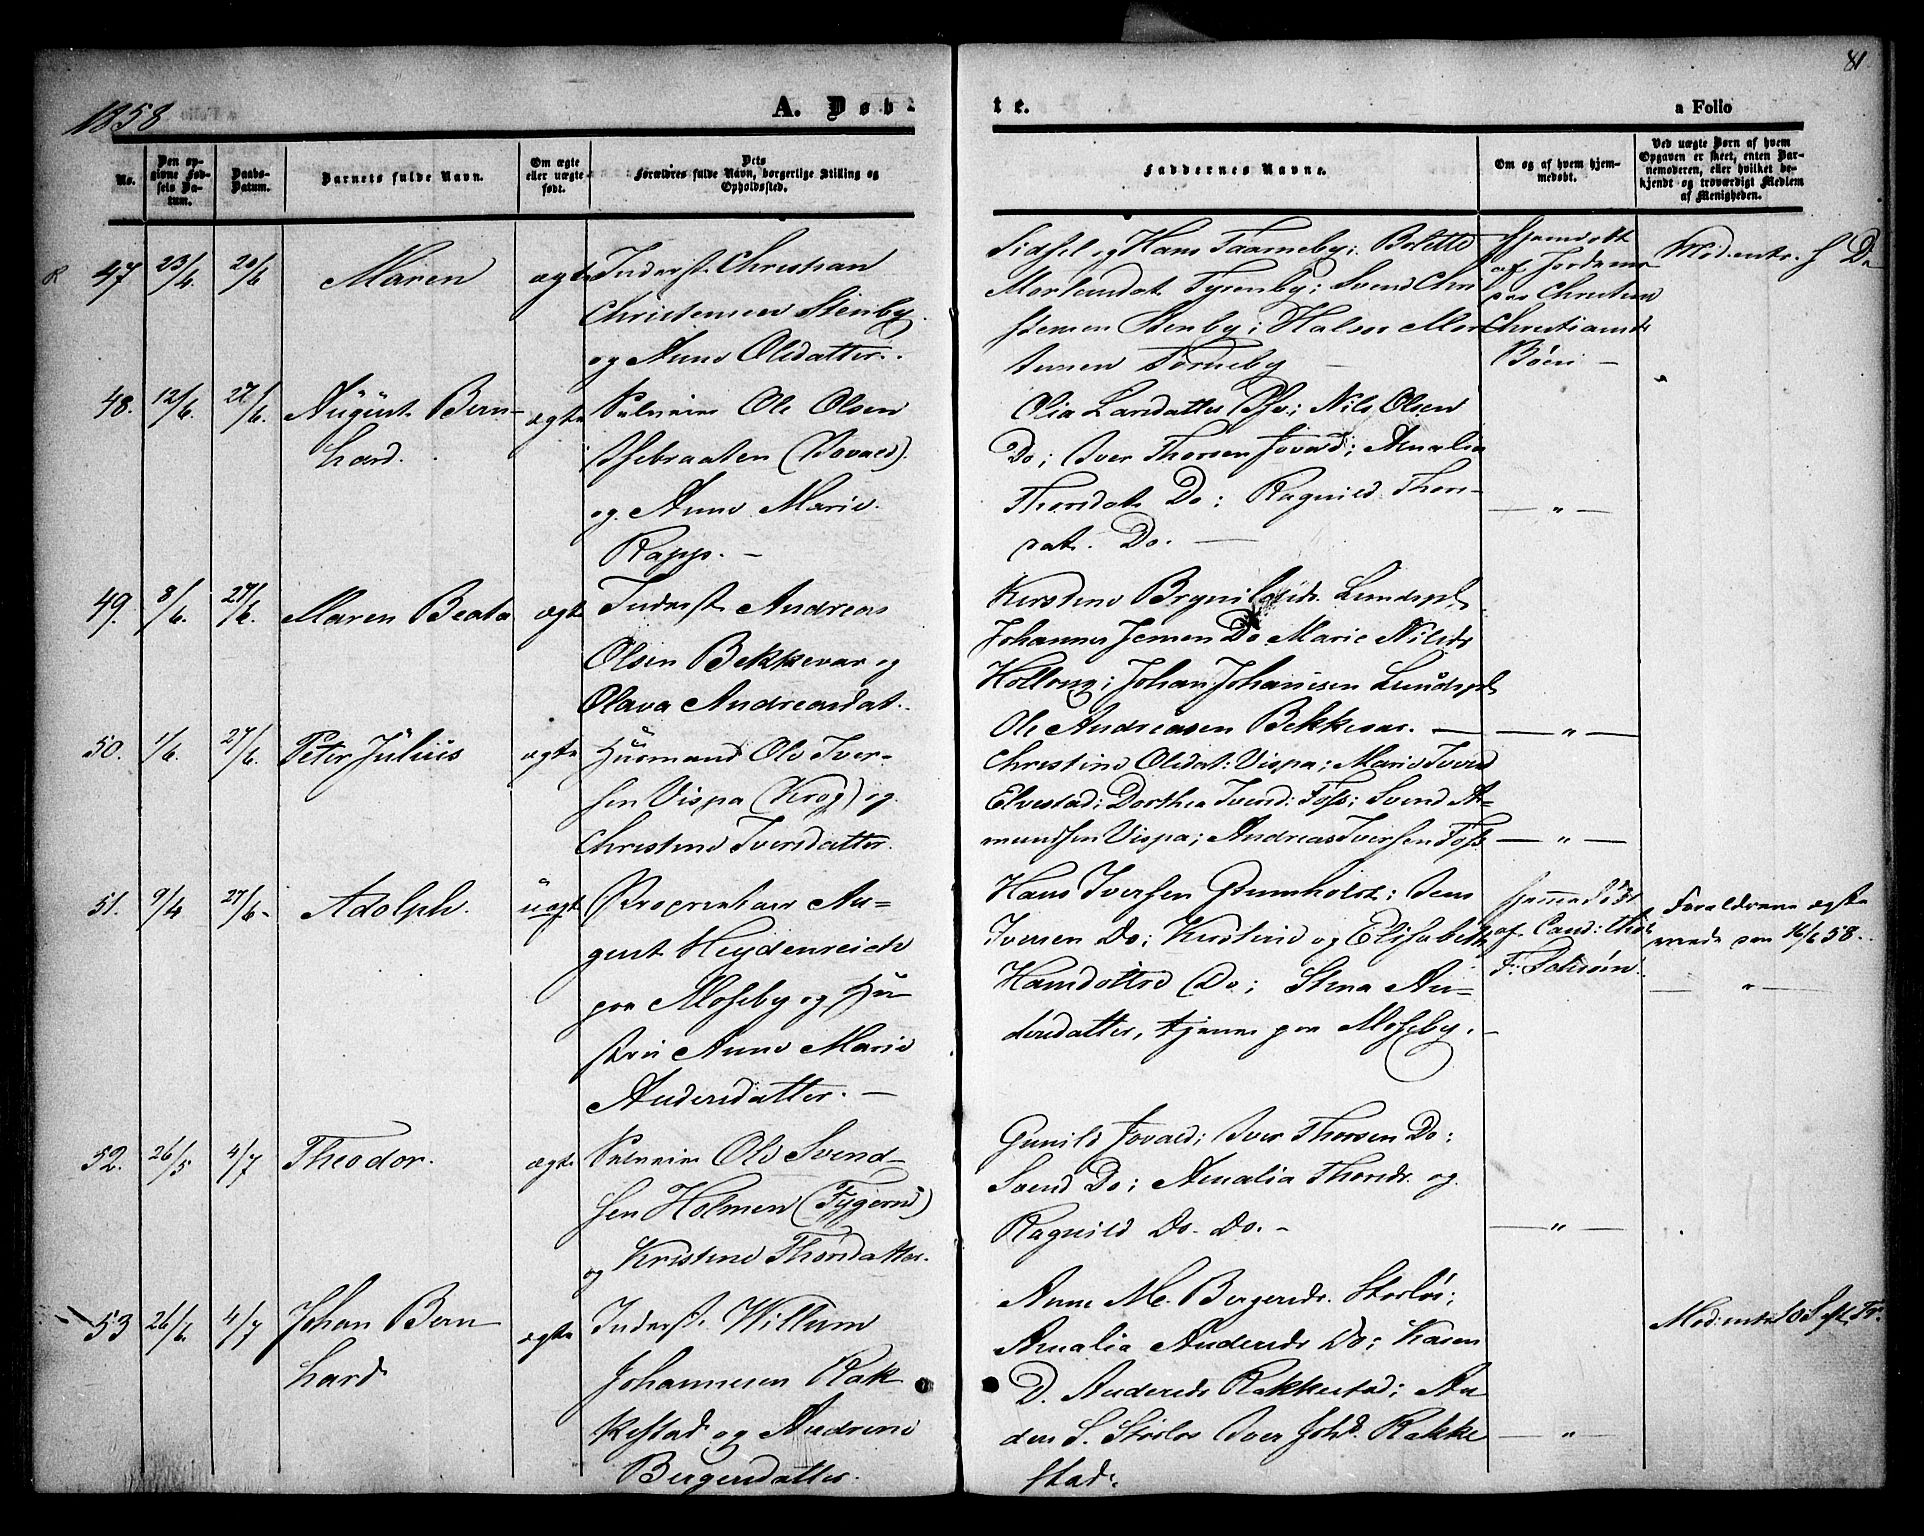 81
1858
A. Døb-
te.
a Folio
No.
Den op-
givne Fød-
sels Da-
tum.
Daabs-
Datum.
Barnets fulde Navn.
Om ægte
eller uægte
født.
Dets
Forældres fulde Navn, borgerlige Stilling og
Opholdssted.
Faddernes Navne.
Om og af hvem hjem-
medøbt.
Ved uægte Børn af hvem
Opgaven er skeet, enten Bar-
nemoderen, eller hvilket be-
kjendt og troværdigt Medlem
af Menigheden.
47 23/4 20/6 Maren ægte Inderst Christian
Christensen Stenby
og Anne Olsdatter.
Sidsel og Hans Taarneby; Bolette
Tyrenby; Svend Chri
stensen Stenby; Halvor Mor
tensen Torneby
Hjemdøbt
af Jordemo
Christine
Christiansd.
Bøeri
48. 12/6. 27/6. August Bern-
hard.
ægte Ole Olsen
(Jovald).
og Anne Marie
Rapp. —
Olia Larsdatter; Nils Olsen
Do; Iver Thorsen Jovald; Amalia
Thorsdat. Do; Ragnild Thors-
dat. Do. —
— " —
49. 8/6. 27/6. Maren Beata ægte Inderst Andreas
Olsen Bekkevar og
Olava Andreasdat.
Kirstine Lundspl.
Johannes Jensen Do Marie Nilsd.
Holleng; Johan Johannesen Lundspl
Ole Andreasen Bekkevar. —
— " —
50. 1/6. 27/6. Peter Julius ægte Husmand Ole Iver-
sen Vispa (Krog) og
Christine Iversdatter.
Christine Olsdat: Vispa; Marie Iversd
Elvestad; Dorthea Svend: Foss; Svend A-
mundsen Vispa; Andreas Iversen Foss
— " —
51. 9/4 27/6 Adolph. uægte Proprietair Au-
gust Heydenreich
paa Moseby og Hu-
stru Anne Marie
Andersdatter. —
Hans Iversen Grimholdt; Jens
Iversen Do; Kirstine og Elisabeth
Hansdøttre Do; Stina An-
dersdatter, tjener paa Moseby. —
Hjemmedøbt
af Cand: theol
F.
Forældrene ægte
viede den 16/6 58.
— " —
52. 26/5 4/7 Theodor. ægte Ole Svend-
sen Holmen (Fygeru)
og Kristine Thorsdatter.
Gunild Jovald; Iver Thorsen Do;
Svend Do; Amalia Thorsd. og
Ragnild Do. Do. —
— " —
53 26/6 4/7 Johan Bern
hard
ægte Inderst Willum
Johannesen Rak
kestad og Andrine
Bergersdatter.
Anne M. Bergersd. Storløs;
Amalia Andersd. Do; Karen
D. Andersd. Rakkestad; An
ders S. Storløs Iver Joh. Rakke
stad.
— " —